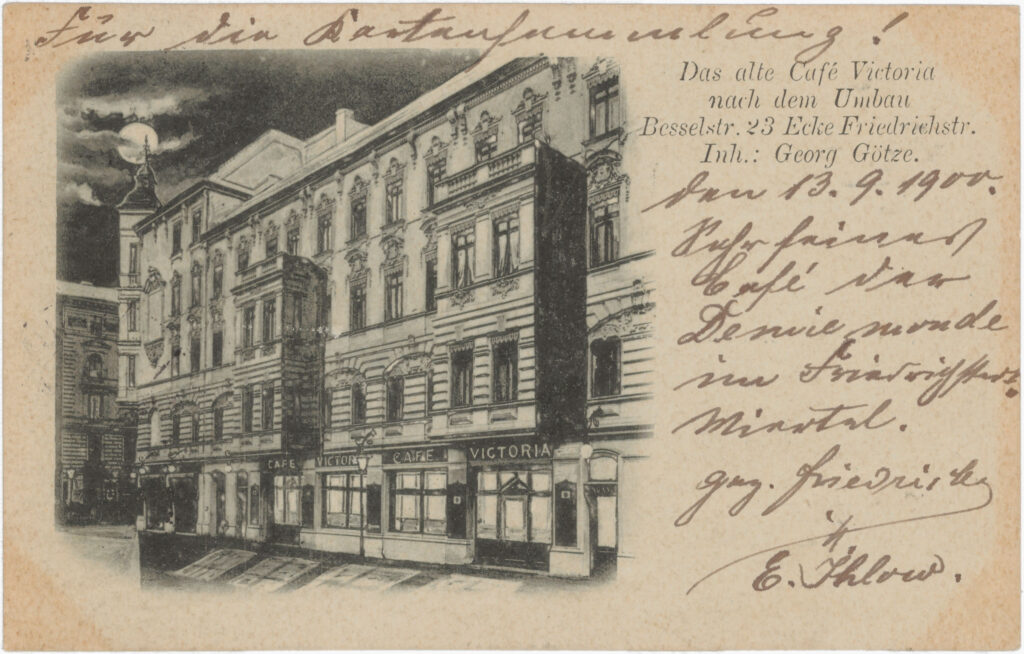 Für die Kartensammlung!
Das alte Café Victoria
nach dem Umbau
Besselstr. 23 Ecke Friedrichstr.
Inh.: Georg Götze.
den 13. 9. 1900.
Sehr feines
Café der
Demie monde
im Friedrichstadt
Viertel.
gez. Friedrich
E. Ihlow.
CAFÉ VICTORIA CAFÉ VICTORIA